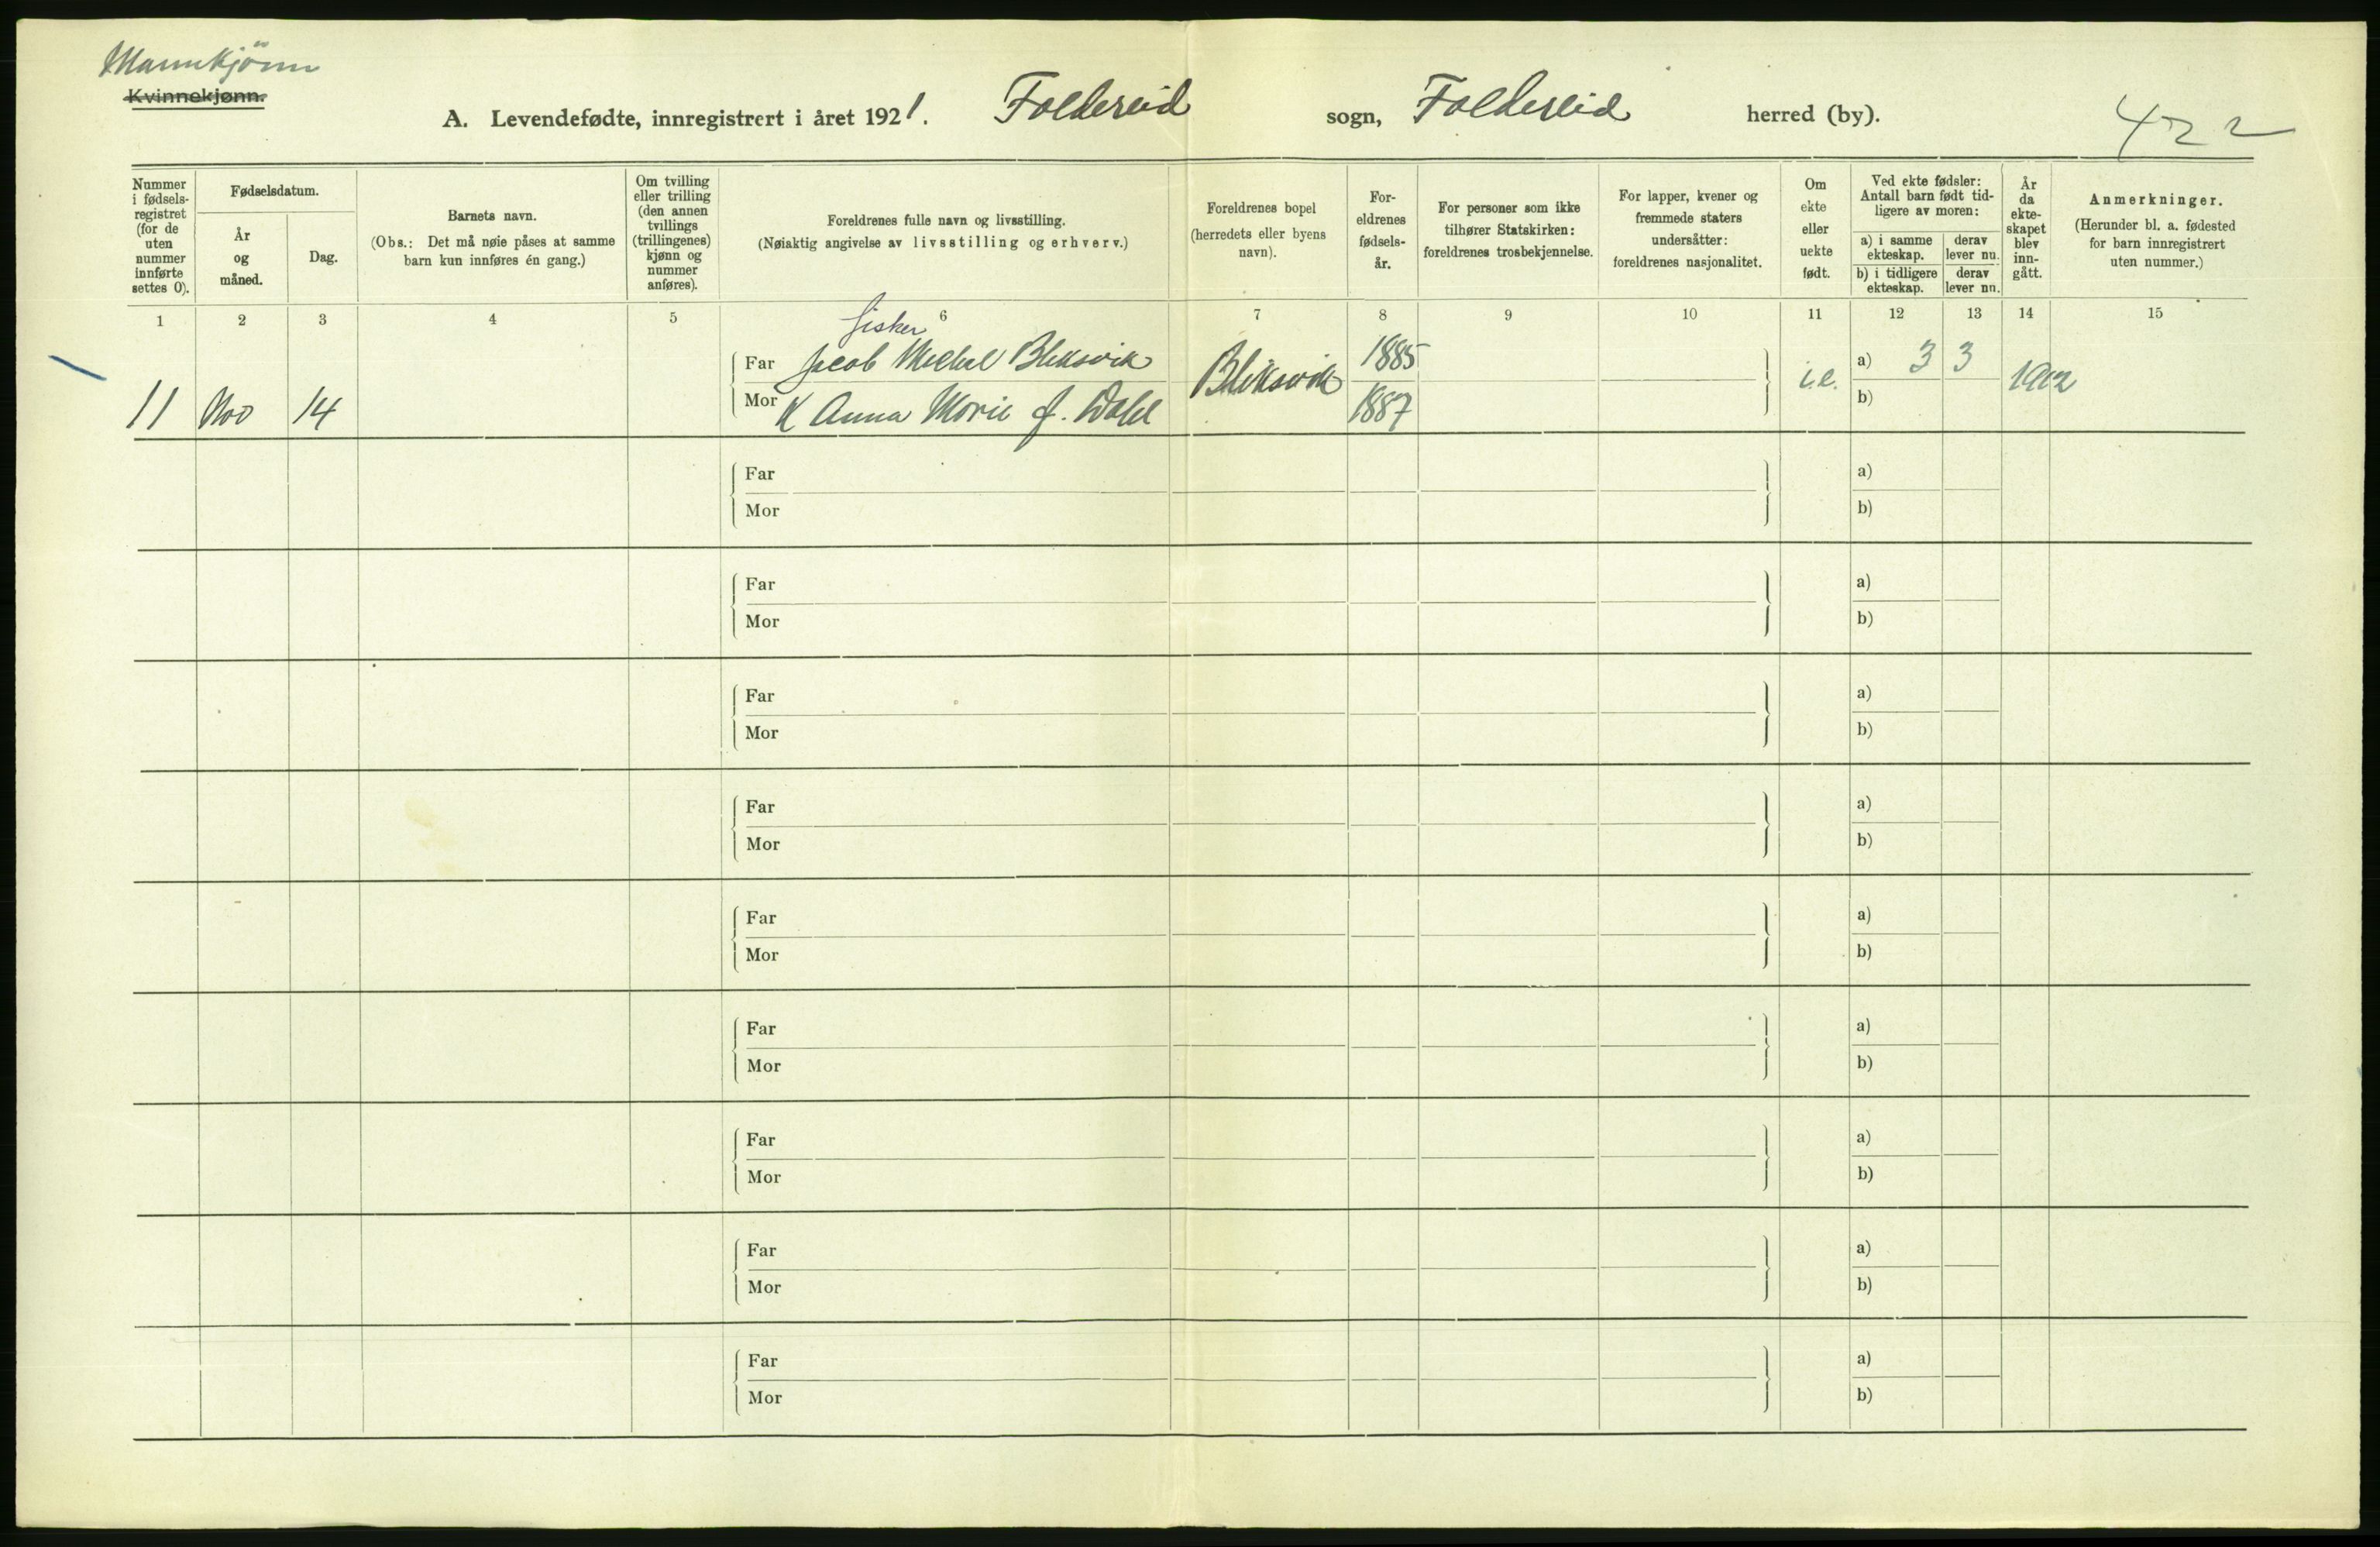 Mannkjönn
Kvinnekjønn.
A. Levendefødte, innregistrert i året 1921. Foldereid sogn, Foldereid herred (by).
422
Nummer i fødsels-registret (for de uten nummer innførte settes 0).
Fødselsdatum.
År og måned.
Dag.
Barnets navn.
(Obs.: Det må nøie påses at samme barn kun innføres én gang.)
Om tvilling eller trilling (den annen tvillings (trillingenes) kjønn og nummer anføres).
Foreldrenes fulle navn og livsstilling.
(Nøiaktig angivelse av livsstilling og erhverv.)
Foreldrenes bopel (herredets eller byens navn).
For-eldrenes fødsels-år.
For personer som ikke tilhører Statskirken: foreldrenes trosbekjennelse.
For lapper, kvener og fremmede staters undersåtter: foreldrenes nasjonalitet.
Om ekte eller uekte født.
Ved ekte fødsler: Antall barn født tid-ligere av moren:
a) i samme ekteskap.
derav lever nu.
b) i tidligere ekteskap.
derav lever nu.
År da ekte-skapet blev inn-gått.
Anmerkninger.
(Herunder bl. a. fødested for barn innregistrert uten nummer.)
1 2 3 4 5 6 7 8 9 10 11 12 13 14 15
fisker
Far Jacob Mickal Bleksvik 1885 a) 3 3
11 Nov 14 Bleksvik i.e. 1912
Mor K Anna Marie f. Dahl 1887 b)
Far a)
Mor b)
Far a)
Mor b)
Far a)
Mor b)
Far a)
Mor b)
Far a)
Mor b)
Far a)
Mor b)
Far a)
Mor b)
Far a)
Mor b)
Far a)
Mor b)